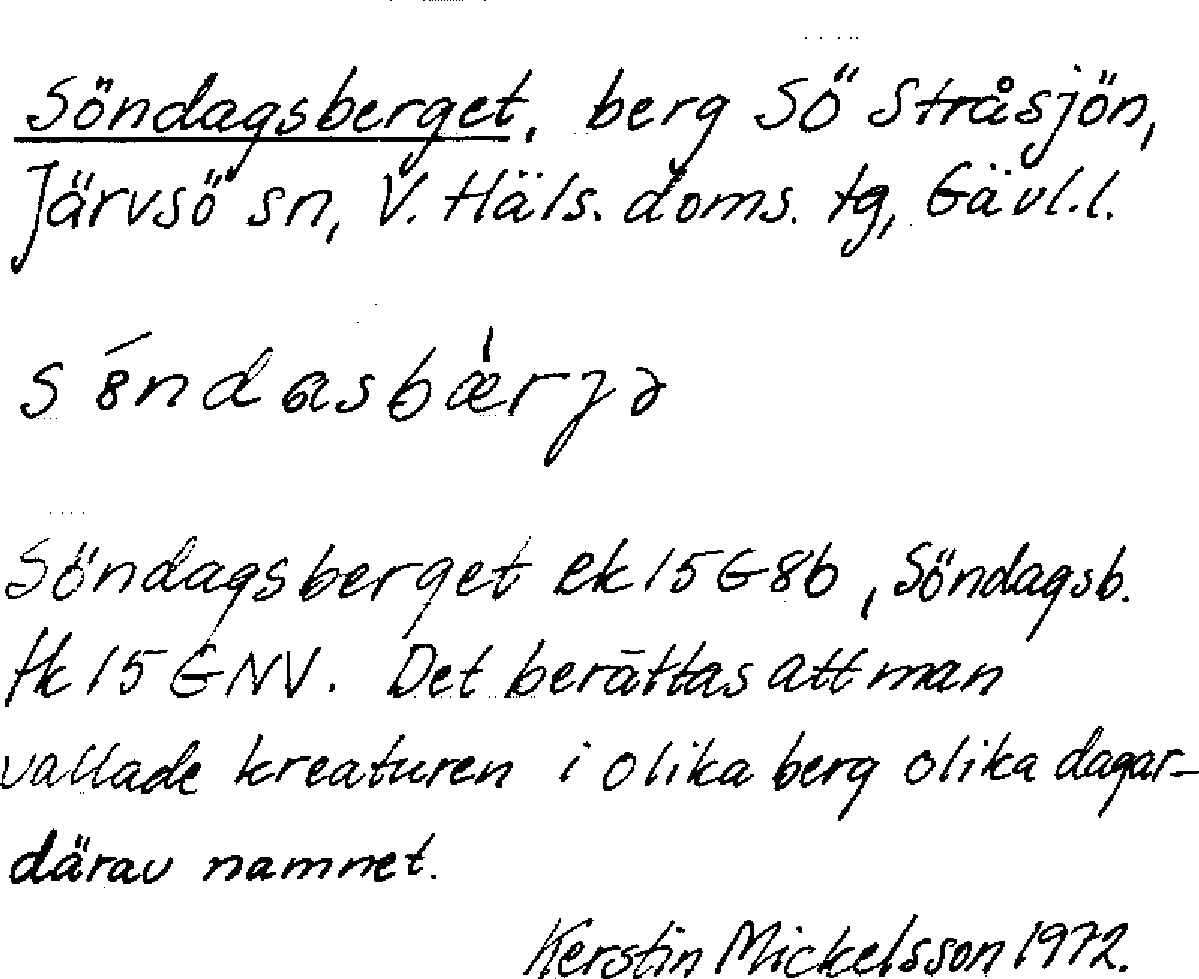 Söndagsberget, berg SÖ Stråsjön,
Järvsö sn, V. Häls. doms. tg, Gävl.l.
sȣ́ndasbæ̀rjə
Söndagsberget ek 15G8b, Söndagsb.
tk 15 GNV. Det berättas att man
vallade kreaturen i olika berg olika dagar-
därav namnet.
Kerstin Mickelsson 1972.